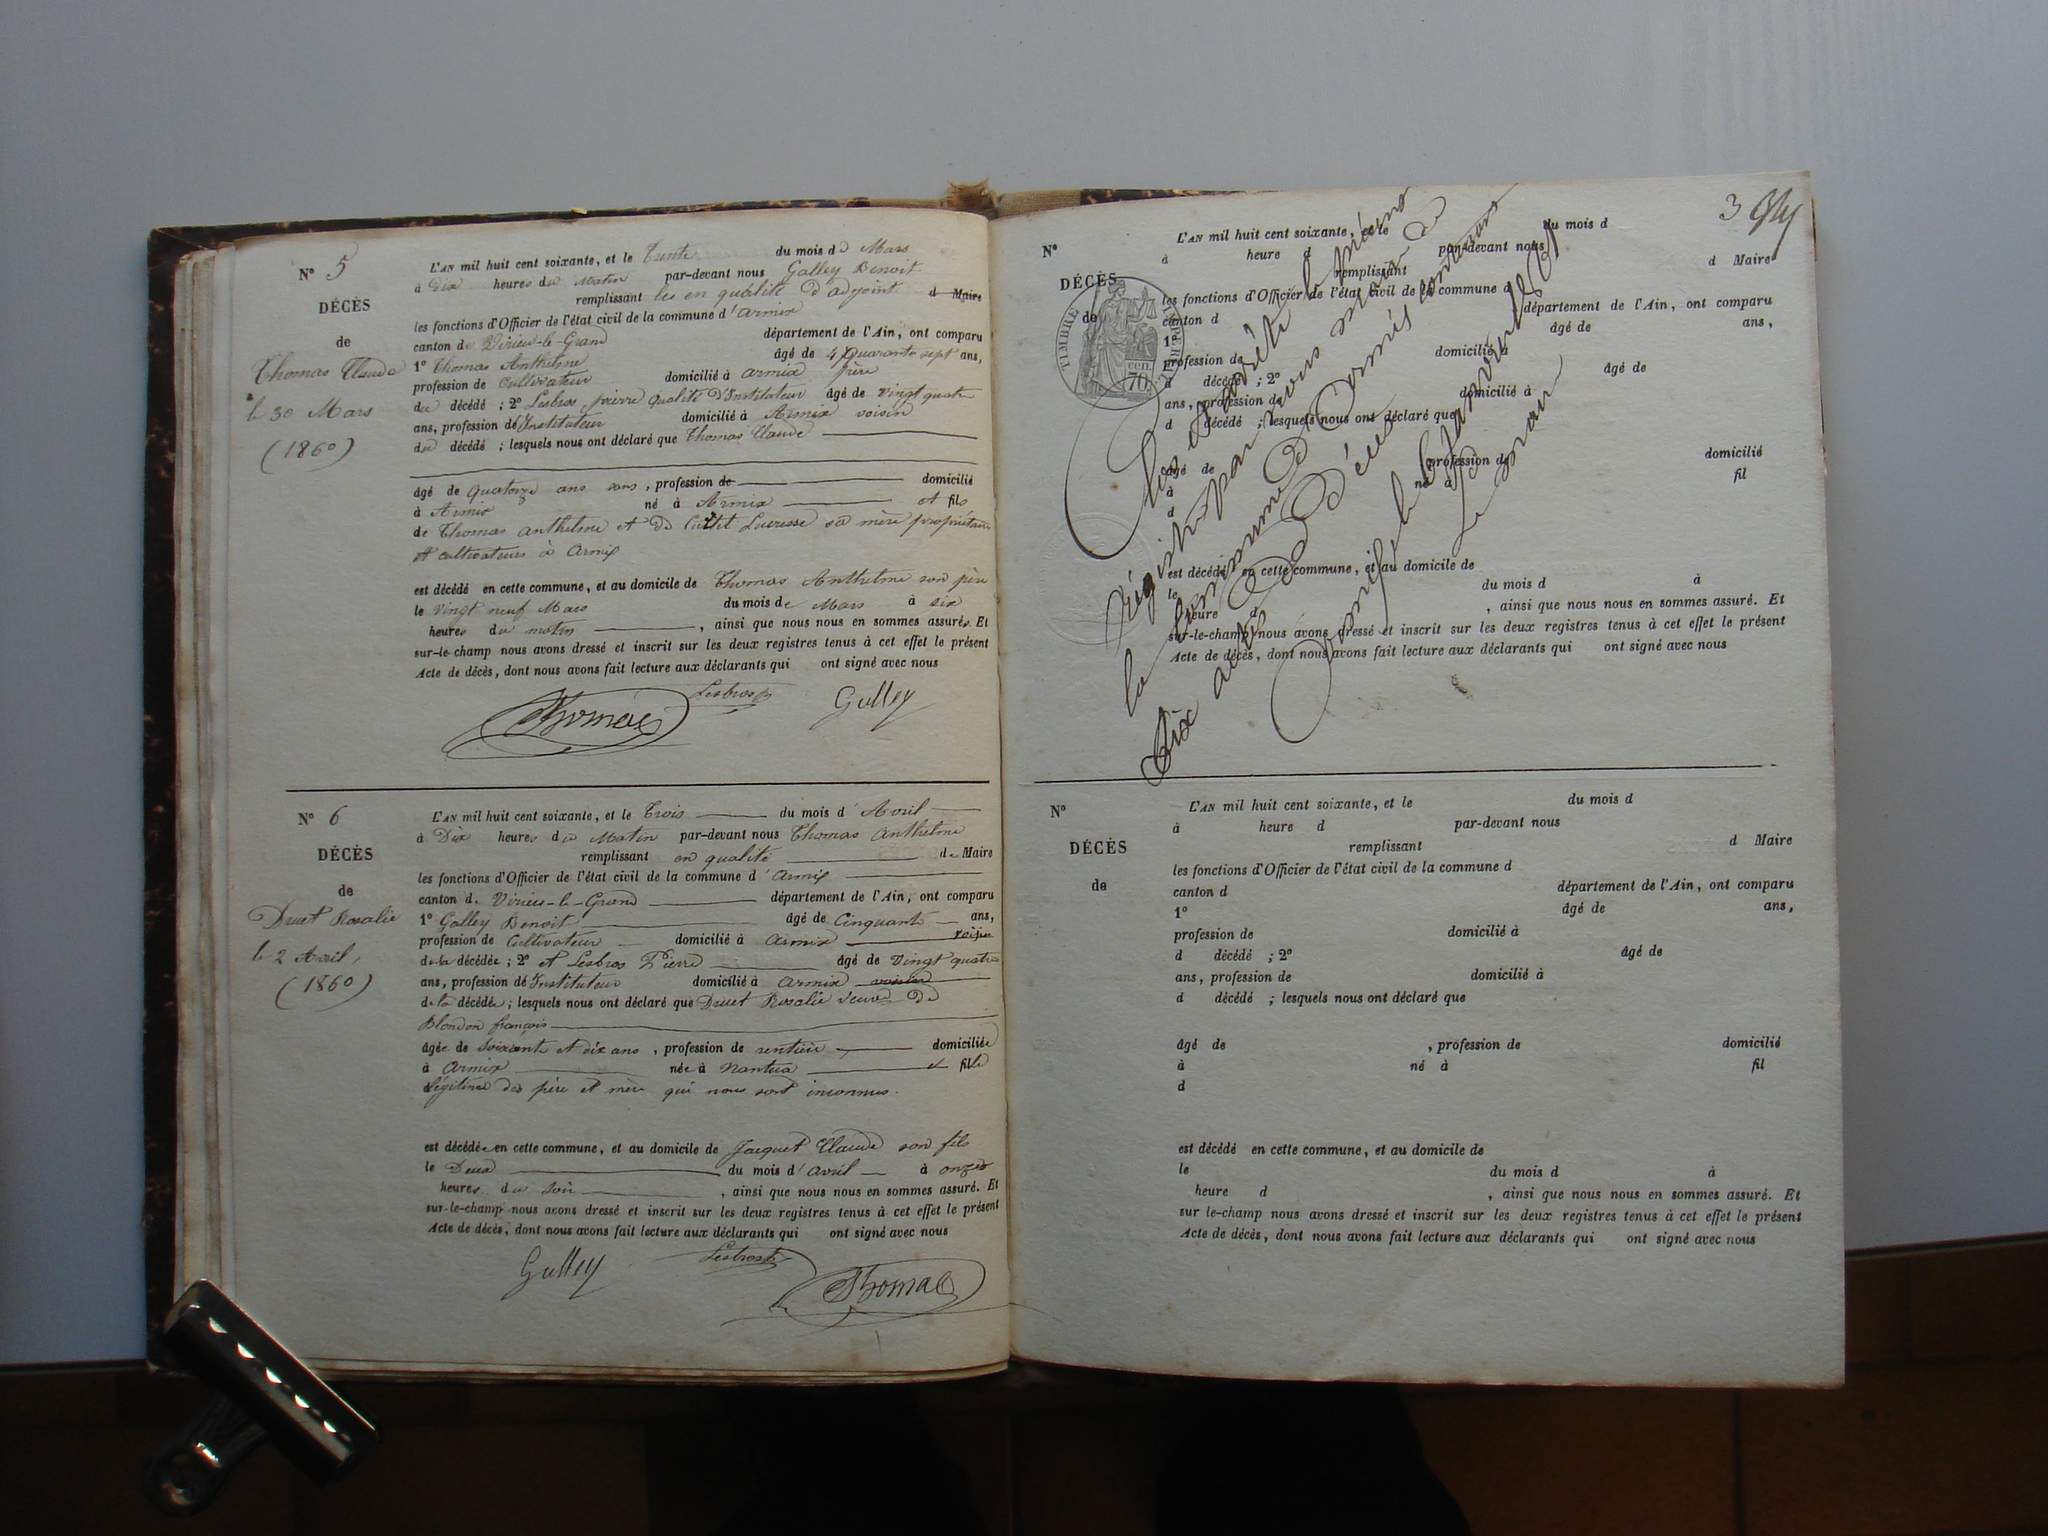 N° 5
DÉCÈS
de
Thomas Claude
le 30 Mars
(1860)
L'AN mil huit cent soixante, et le Trente du mois de Mars
à Dix heures du Matin par-devant nous Golley Benoit
remplissant les en qualité d'adjoint d Maire
les fonctions d'Officier de l'état civil de la commune d'Armix
canton de Virieu-le-Grand département de l'Ain, ont comparu
1° Thomas Anthelme âgé de 4 Quarante sept ans,
profession de Cultivateur domicilié à Armix père
du décédé ; 2° Lesbros pierre qualité d'Instituteur âgé de vingt quatre
ans, profession de Instituteur domicilié à Armix voisin
du décédé ; lesquels nous ont déclaré que Thomas Claude
âgé de quatorze ans sans, profession de domicilié
à Armix né à Armix et fils
de Thomas anthelme et de Lucresse sa mère propriétaires
et cultivateurs à Armix
est décédé en cette commune, et au domicile de Thomas Anthelme son père
le vingt neuf Mars du mois de Mars à six
heures du matin , ainsi que nous nous en sommes assurés. Et
sur-le-champ nous avons dressé et inscrit sur les deux registres tenus à cet effet le présent
Acte de décès, dont nous avons fait lecture aux déclarants qui ont signé avec nous
Lesbros
Thomas Golley
N° 6
DÉCÈS
de
Druet Rosalie
le 2 Avril,
(1860)
L'AN mil huit cent soixante, et le Trois du mois d'Avril
à Dix heures du Matin par-devant nous Thomas Anthelme
remplissant en qualité de Maire
les fonctions d'Officier de l'état civil de la commune d'Armix
canton de Virieu-le-Grand département de l'Ain, ont comparu
1° Golley Benoit âgé de Cinquante ans,
profession de Cultivateur domicilié à Armix voisin
de la décédée ; 2° et Lesbros Pierre âgé de vingt quatre
ans, profession de Instituteur domicilié à Armix voisin
de la décédée ; lesquels nous ont déclaré que Druet Rosalie veuve de
Blondon françois
âgée de soixante et dix ans , profession de rentière domiciliée
à Armix née à Nantua et fille
légitime des père et mère qui nous sont inconnus.
est décédée en cette commune, et au domicile de Jacquet Claude son fils
le Deux du mois d'avril à onze
heures du soir , ainsi que nous nous en sommes assuré. Et
sur-le-champ nous avons dressé et inscrit sur les deux registres tenus à cet effet le présent
Acte de décès, dont nous avons fait lecture aux déclarants qui ont signé avec nous
Golley Lesbros
Thomas
3
N°
DÉCÈS
de
TIMBRE IMPERIAL
70 cen
L'AN mil huit cent soixante, et le du mois d
à heure d par-devant nous
remplissant d Maire
les fonctions d'Officier de l'état civil de la commune d
canton d département de l'Ain, ont comparu
1° âgé de ans,
profession de domicilié à
d décédé ; 2° âgé de
ans, profession de domicilié à
d décédé ; lesquels nous ont déclaré que
âgé de profession de domicilié
à né à fil
d
est décédé en cette commune, et au domicile de
le du mois d à
heure d , ainsi que nous nous en sommes assuré. Et
sur-le-champ nous avons dressé et inscrit sur les deux registres tenus à cet effet le présent
Acte de décès, dont nous avons fait lecture aux déclarants qui ont signé avec nous
Clos et arrêté le présent
Régistre par nous maire de
la commune d'Armix contenant
Six actes de Décès
Armix, le 1 Janvier 1861
Le maire
N°
DÉCÈS
de
L'AN mil huit cent soixante, et le du mois d
à heure d par-devant nous
remplissant d Maire
les fonctions d'Officier de l'état civil de la commune d
canton d département de l'Ain, ont comparu
1° âgé de ans,
profession de domicilié à
d décédé ; 2° âgé de
ans, profession de domicilié à
d décédé ; lesquels nous ont déclaré que
âgé de , profession de domicilié
à né à fil
d
est décédé en cette commune, et au domicile de
le du mois d à
heure d , ainsi que nous nous en sommes assuré. Et
sur le-champ nous avons dressé et inscrit sur les deux registres tenus à cet effet le présent
Acte de décès, dont nous avons fait lecture aux déclarants qui ont signé avec nous